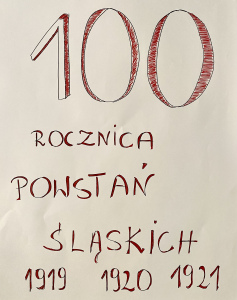 100
ROCZNICA
POWSTAŃ
ŚLĄSKICH
1919 1920 1921